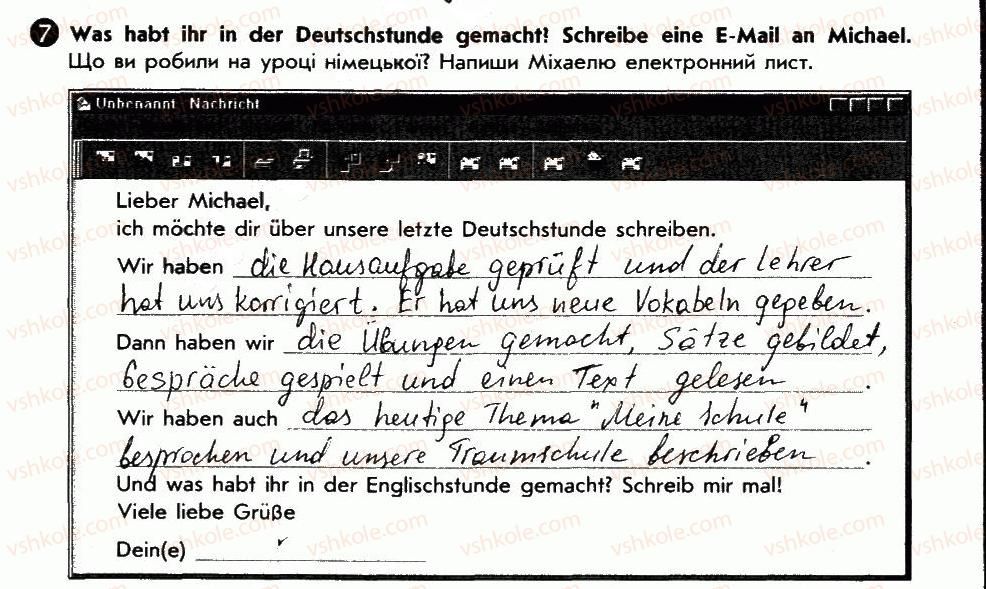 7 Was habt ihr in der Deutschstunde gemacht? Schreibe eine E-Mail an Michael.
Що ви робили на уроці німецької? Напиши Міхаелю електронний лист.
Unbenannt Nachricht
Lieber Michael,
ich möchte dir über unsere letzte Deutschstunde schreiben.
Wir haben die Hausaufgabe geprüft und der Lehrer
hat uns korrigiert. Er hat uns neue Vokabeln gegeben.
Dann haben wir die Übungen gemacht, Sätze gebildet,
Gespräche gespielt und einen Text gelesen.
Wir haben auch das heutige Thema "Meine Schule"
besprochen und unsere Traumschule beschrieben.
Und was habt ihr in der Englischstunde gemacht? Schreib mir mal!
Viele liebe Grüße
Dein(e)
vshkole.com